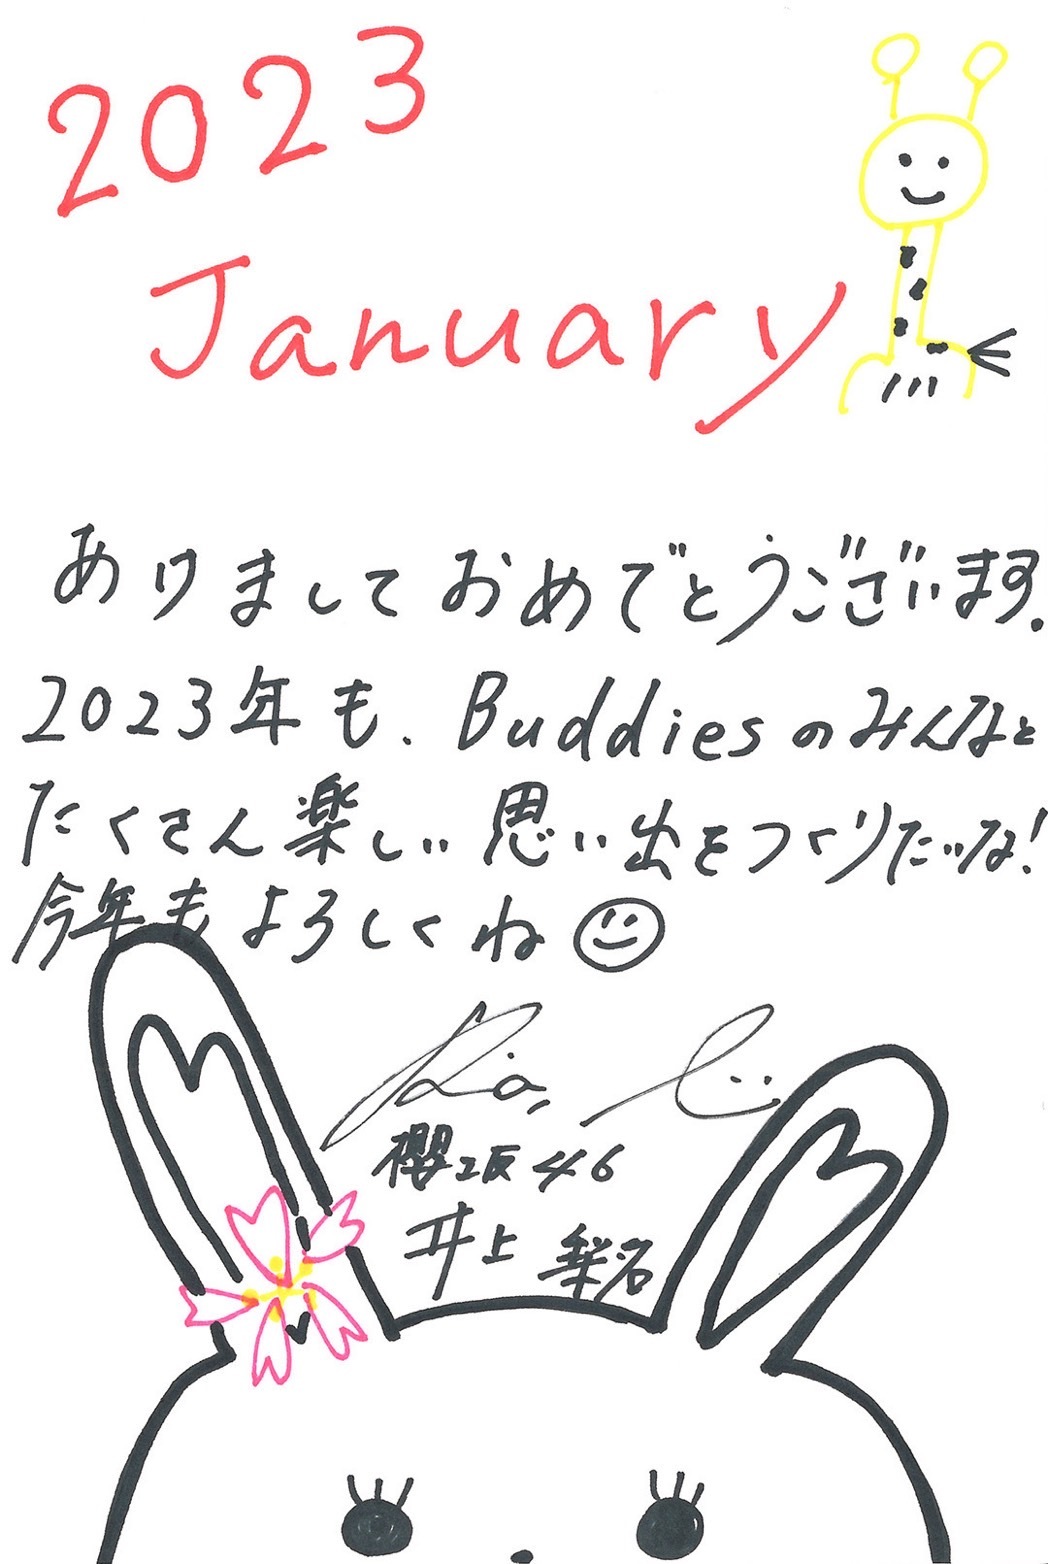 2023
January
ありましておめでとうございます.
2023年も、Buddiesのみんなと
たくさん楽しい思い出をつくりたいな!
今年もよろしくね
櫻坂46
井上 梨名